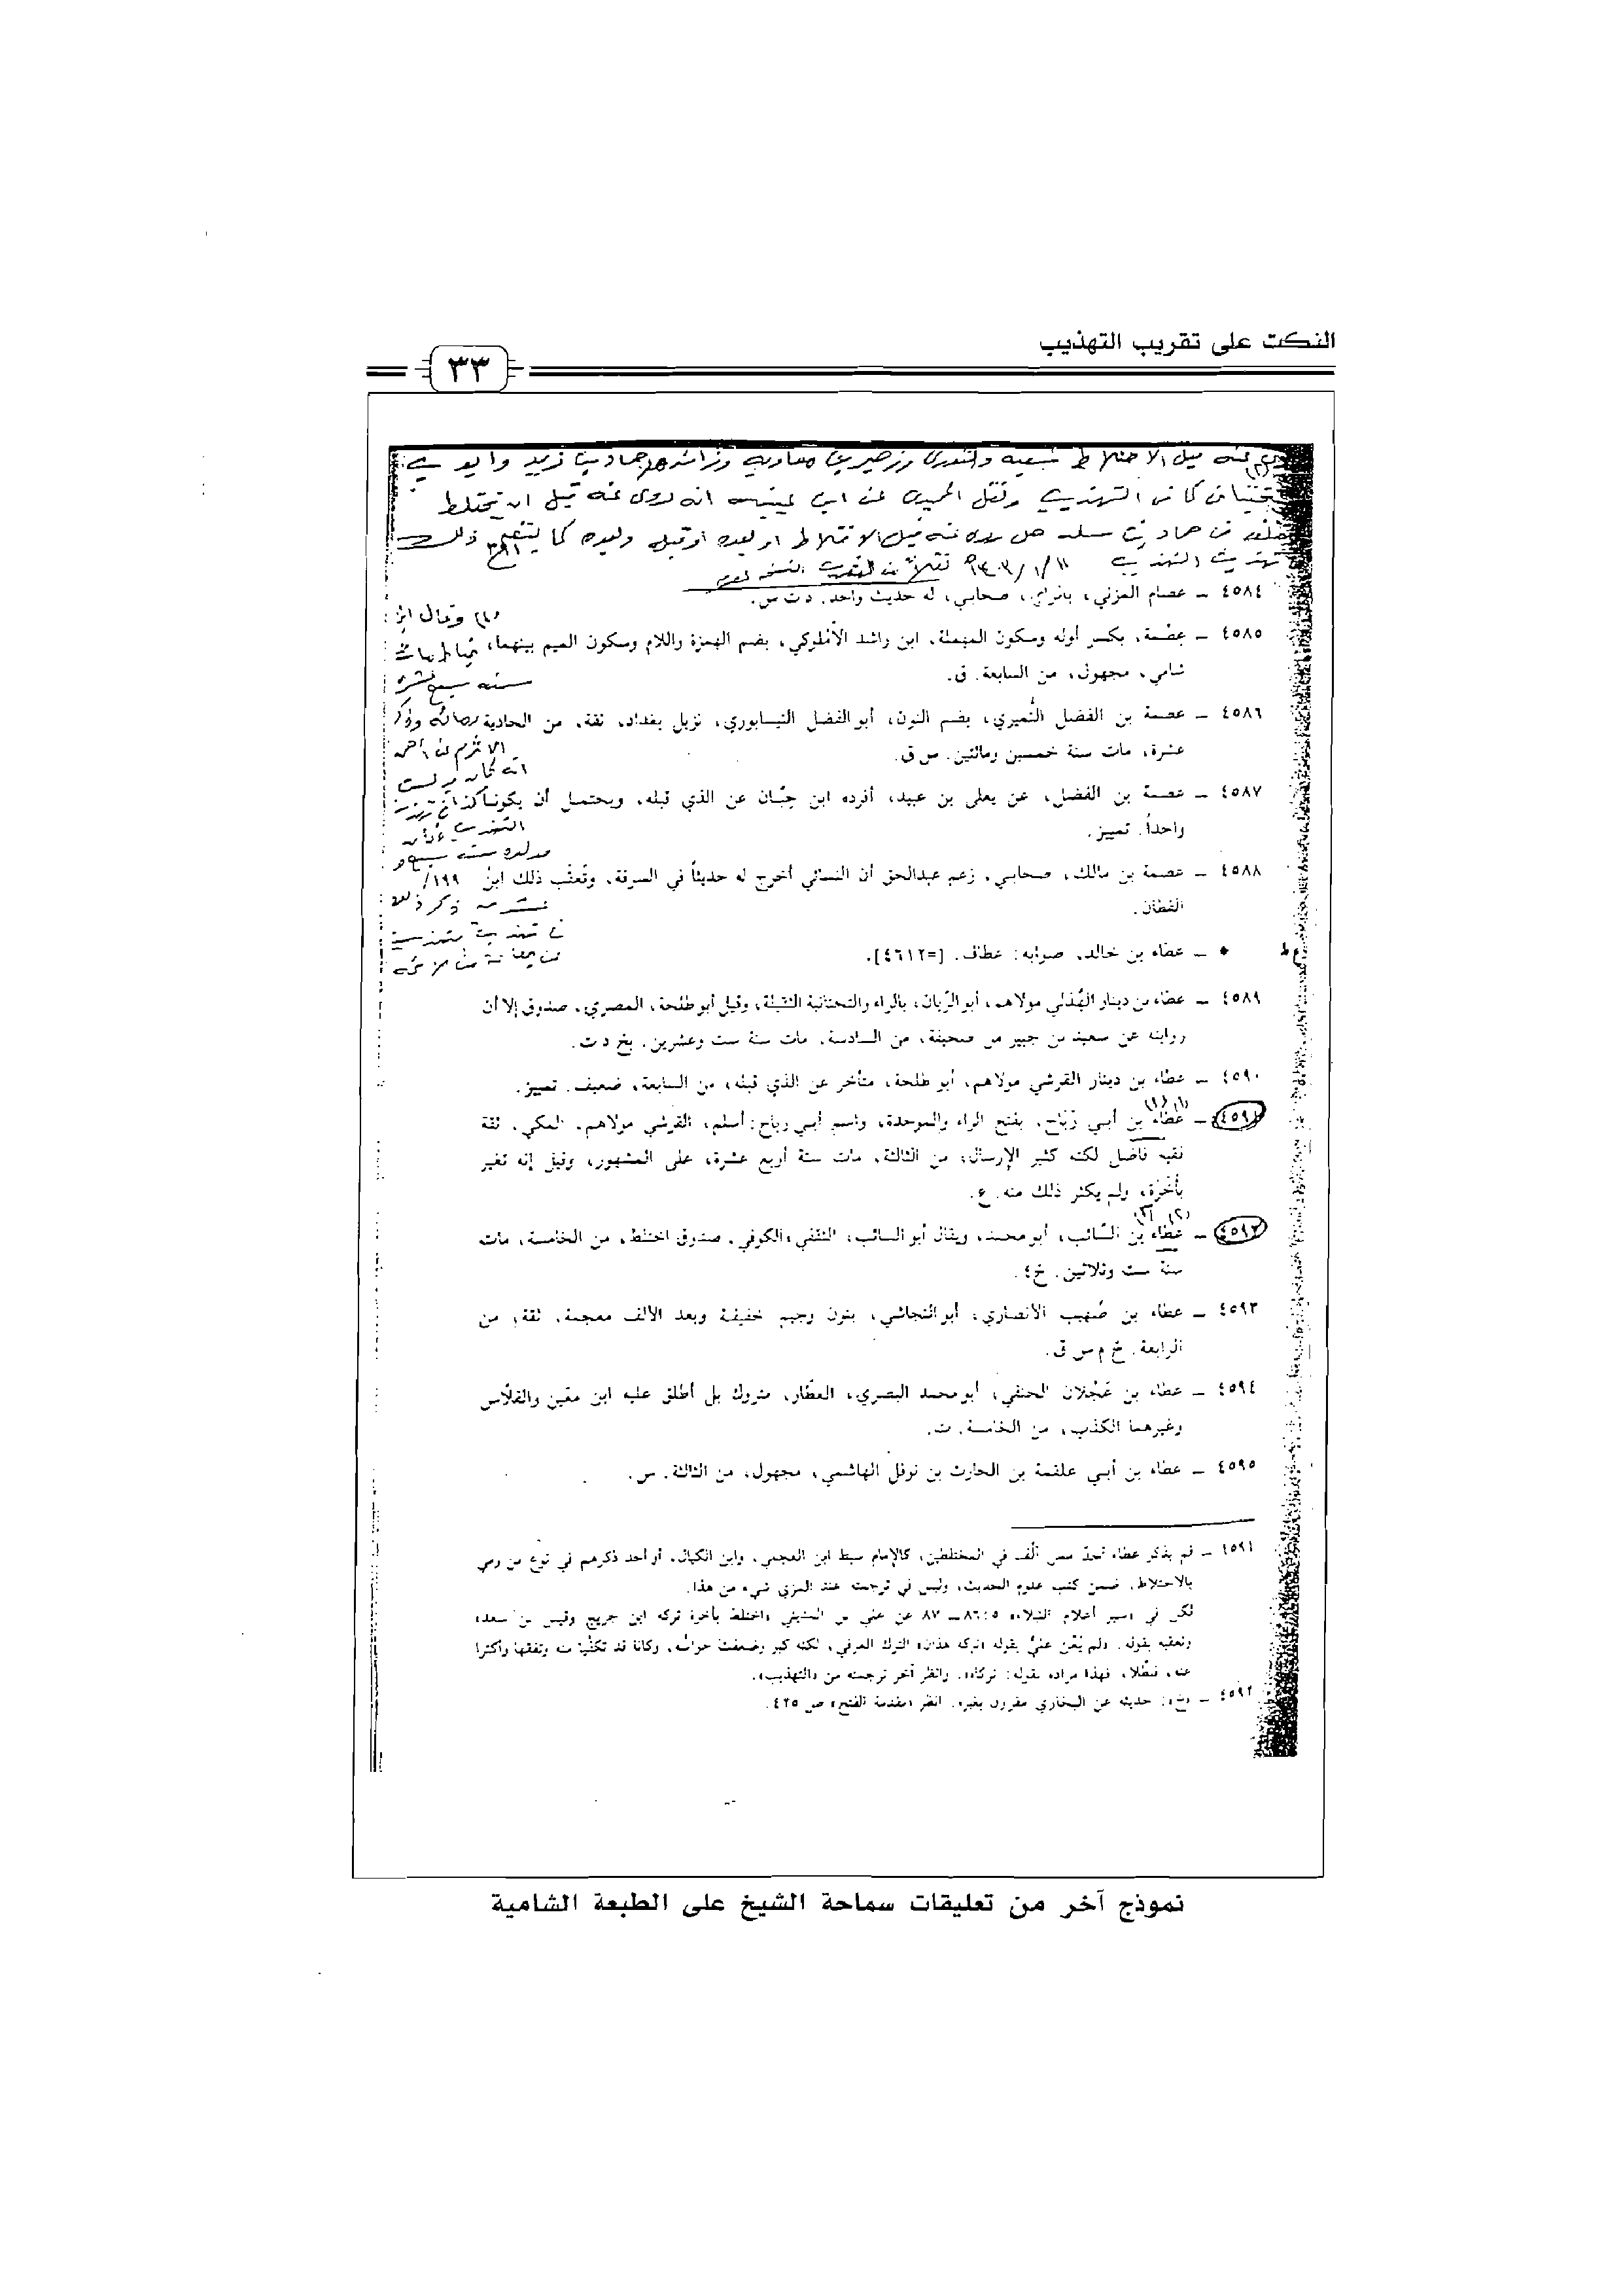 النكت على تقريب التهذيب
٣٣
عنه قبل الاختلاط شعبة والثوري وزهير بن معاوية وزائدة وحماد بن زيد وأيوب
كما في التهذيب ونقل الحميدي عن ابن عيينة أنه روى عنه قبل أن يختلط
حماد بن سلمة هل روى عنه قبل الاختلاط أو بعده أو قبله وبعده كما ذلك
تهذيب التهذيب
٤٥٨٤ – عصام المزني، بالزاي، صحابي، له حديث واحد. د ت س.
(١) وقال ابن
٤٥٨٥ – عِصْمة، بكسر أوله وسكون المهملة، ابن راشد الأُمْلوكي، بضم الهمزة واللام وسكون الميم بينهما،
شامي، مجهول، من السابعة. ق.
سنة سبع عشرة
٤٥٨٦ – عصمة بن الفضل النُّميري، بضم النون، أبو الفضل النيسابوري، نزيل بغداد، ثقة، من الحادية
عشرة، مات سنة خمسين ومائتين. س ق.
٤٥٨٧ – عصمة بن الفضل، عن يعلى بن عبيد، أفرده ابن حِبّان عن الذي قبله، ويحتمل أن يكونا
واحداً. تمييز.
٤٥٨٨ – عصمة بن مالك، صحابي، زعم عبدالحق أن النسائي أخرج له حديثاً في السرقة، وتعقّب ذلك ابن
القطان.
* – عطاء بن خالد، صوابه: عطاف. [=٤٦١٢].
٤٥٨٩ – عطاء بن دينار الهُذلي مولاهم، أبو الرَّيان، بالراء والتحتانية الثقيلة، وقيل أبو طلحة، المصري، صدوق إلا أن
روايته عن سعيد بن جبير من صحيفة، من السادسة، مات سنة ست وعشرين. بخ د ت.
٤٥٩٠ – عطاء بن دينار القرشي مولاهم، أبو طلحة، متأخر عن الذي قبله، من السابعة، ضعيف. تمييز.
٤٥٩١ – عطاء بن أبي رَبَاح، بفتح الراء والموحدة، واسم أبي رباح: أسلم، القرشي مولاهم، المكي، ثقة
فقيه فاضل لكنه كثير الإرسال، من الثالثة، مات سنة أربع عشرة، على المشهور، وقيل إنه تغير
بأَخَرَة، ولم يكثر ذلك منه. ع.
٤٥٩٢ – عطاء بن السَّائب، أبو محمد، ويقال أبو السائب، الثقفي، الكوفي، صدوق اختلط، من الخامسة، مات
سنة ست وثلاثين. خ٤.
٤٥٩٣ – عطاء بن صُهيب الأنصاري، أبو النجاشي، بنون وجيم خفيفة وبعد الألف معجمة، ثقة، من
الرابعة. خ م س ق.
٤٥٩٤ – عطاء بن عَجْلان الحنفي، أبو محمد البصري، العطّار، متروك بل أطلق عليه ابن معين والفلّاس
وغيرهما الكذب، من الخامسة. ت.
٤٥٩٥ – عطاء بن أبي علقمة بن الحارث بن نوفل الهاشمي، مجهول، من الثالثة. س.
٤٥٩١ – لم يذكر عطاء أحدٌ ممن ألّف في المختلطين، كالإمام سبط ابن العجمي، وابن الكيال، أو أحد ذكرهم في نوع من رمي
بالاختلاط، ضمن كتب علوم الحديث، وليس في ترجمته عند المزي شيء من هذا.
لكن في «سير أعلام النبلاء» ٥: ٨٦ – ٨٧ عن علي بن المديني «اختلط بأخرة تركه ابن جريج وقيس بن سعد»
وتعقبه بقوله: «لم يَعْنِ عليٌّ بقوله «تركه هذان» الترك العرفي، لكنه كبر وضعفت حواسُّه، وكانا قد تكفّيا منه وتفقها وأكثرا
عنه، فبطّلا، فهذا مراده بقوله: تركاه». وانظر آخر ترجمته من «التهذيب».
٤٥٩٢ – «خ»: حديثه عن البخاري مقرون بغيره. انظر «مقدمة الفتح» ص ٤٢٥.
نموذج آخر من تعليقات سماحة الشيخ على الطبعة الشامية